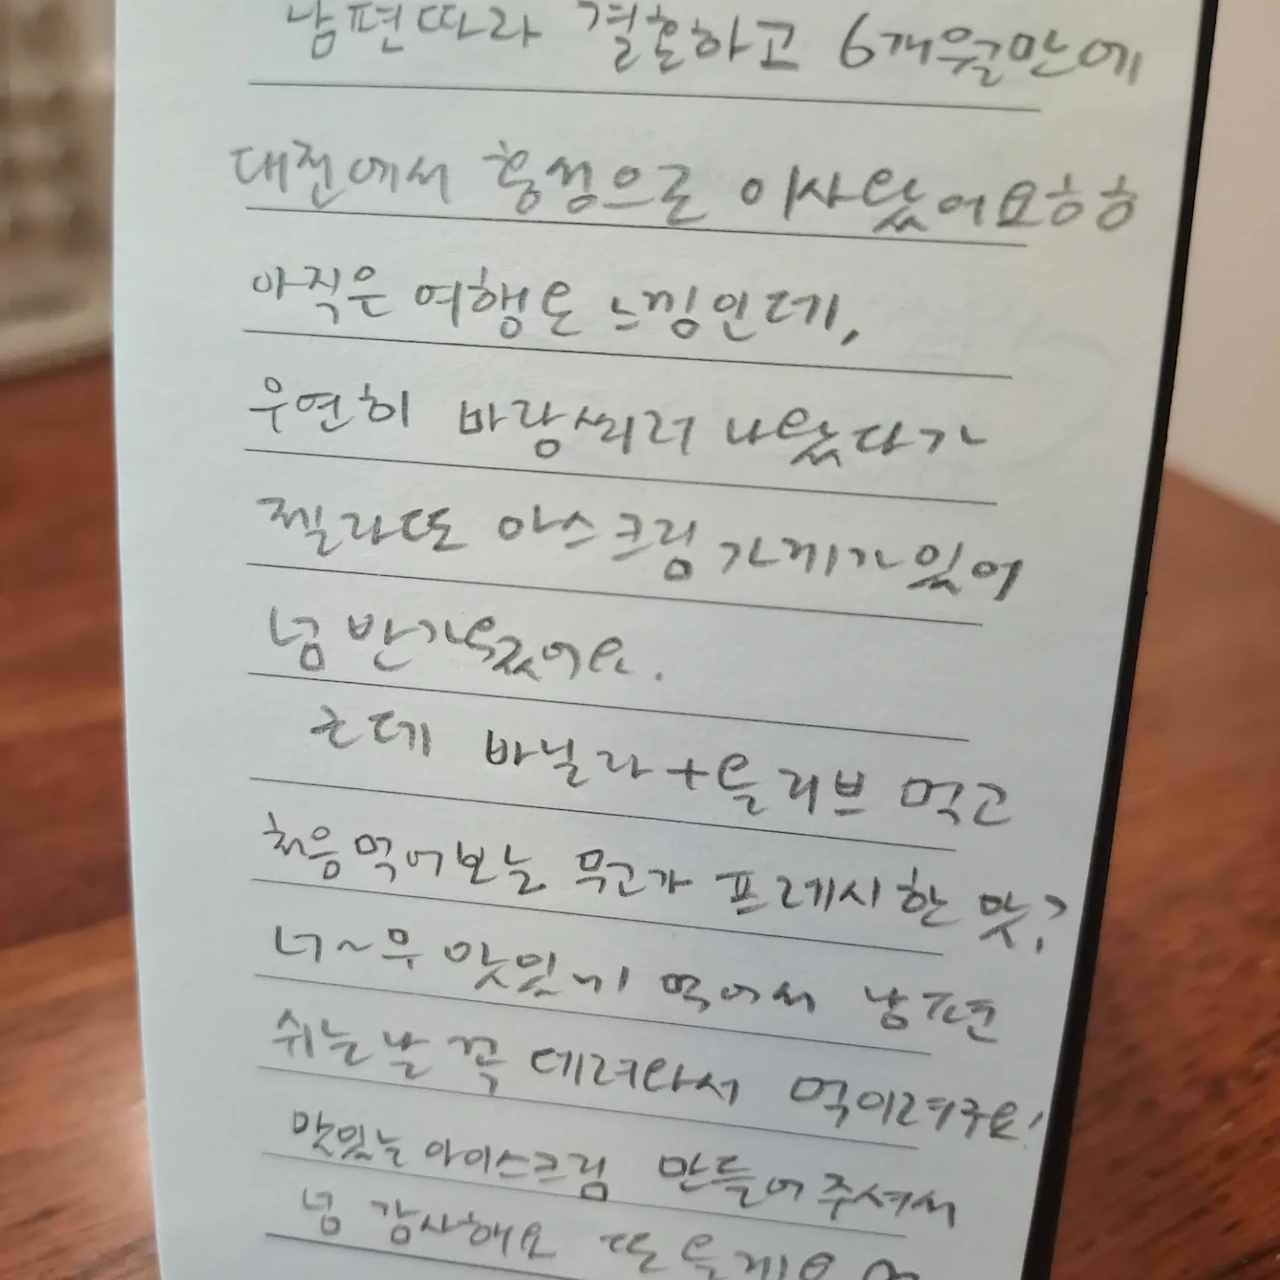 남편따라 결혼하고 6개월만에
대전에서 홍성으로 이사왔어요ㅎㅎ
아직은 여행온 느낌인데,
우연히 바람쐬러 나왔다가
젤라또 아스크림 가게가 있어
넘 반가웠어요.
근데 바닐라+올리브 먹고
처음먹어보는 무언가 프레시한 맛?
너~무 맛있게 먹어서 남편
쉬는날 꼭 데려와서 먹이려구요!
맛있는 아이스크림 만들어주셔서
넘 감사해요 또 올게요